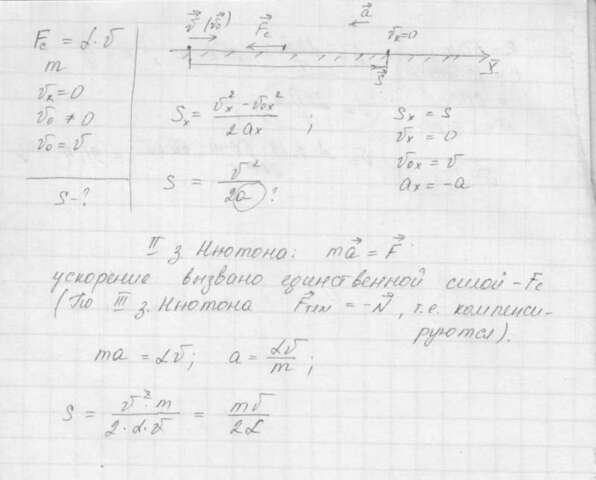 Fc = α·v
m
vк = 0
v₀ ≠ 0
v₀ = v
S - ?
v⃗ (v⃗₀)
F⃗c
a⃗
vк = 0
S⃗
X
Sx = (vx² - v₀x²) / 2ax ;
S = v² / 2a ?
Sx = S
vx = 0
v₀x = v
ax = -a
II з. Ньютона: ma⃗ = F⃗
ускорение вызвано единственной силой - Fc
(По III з. Ньютона F⃗тяж = -N⃗, т.е. компенси-
руются).
ma = αv; a = αv / m ;
S = v²·m / 2·α·v = mv / 2α